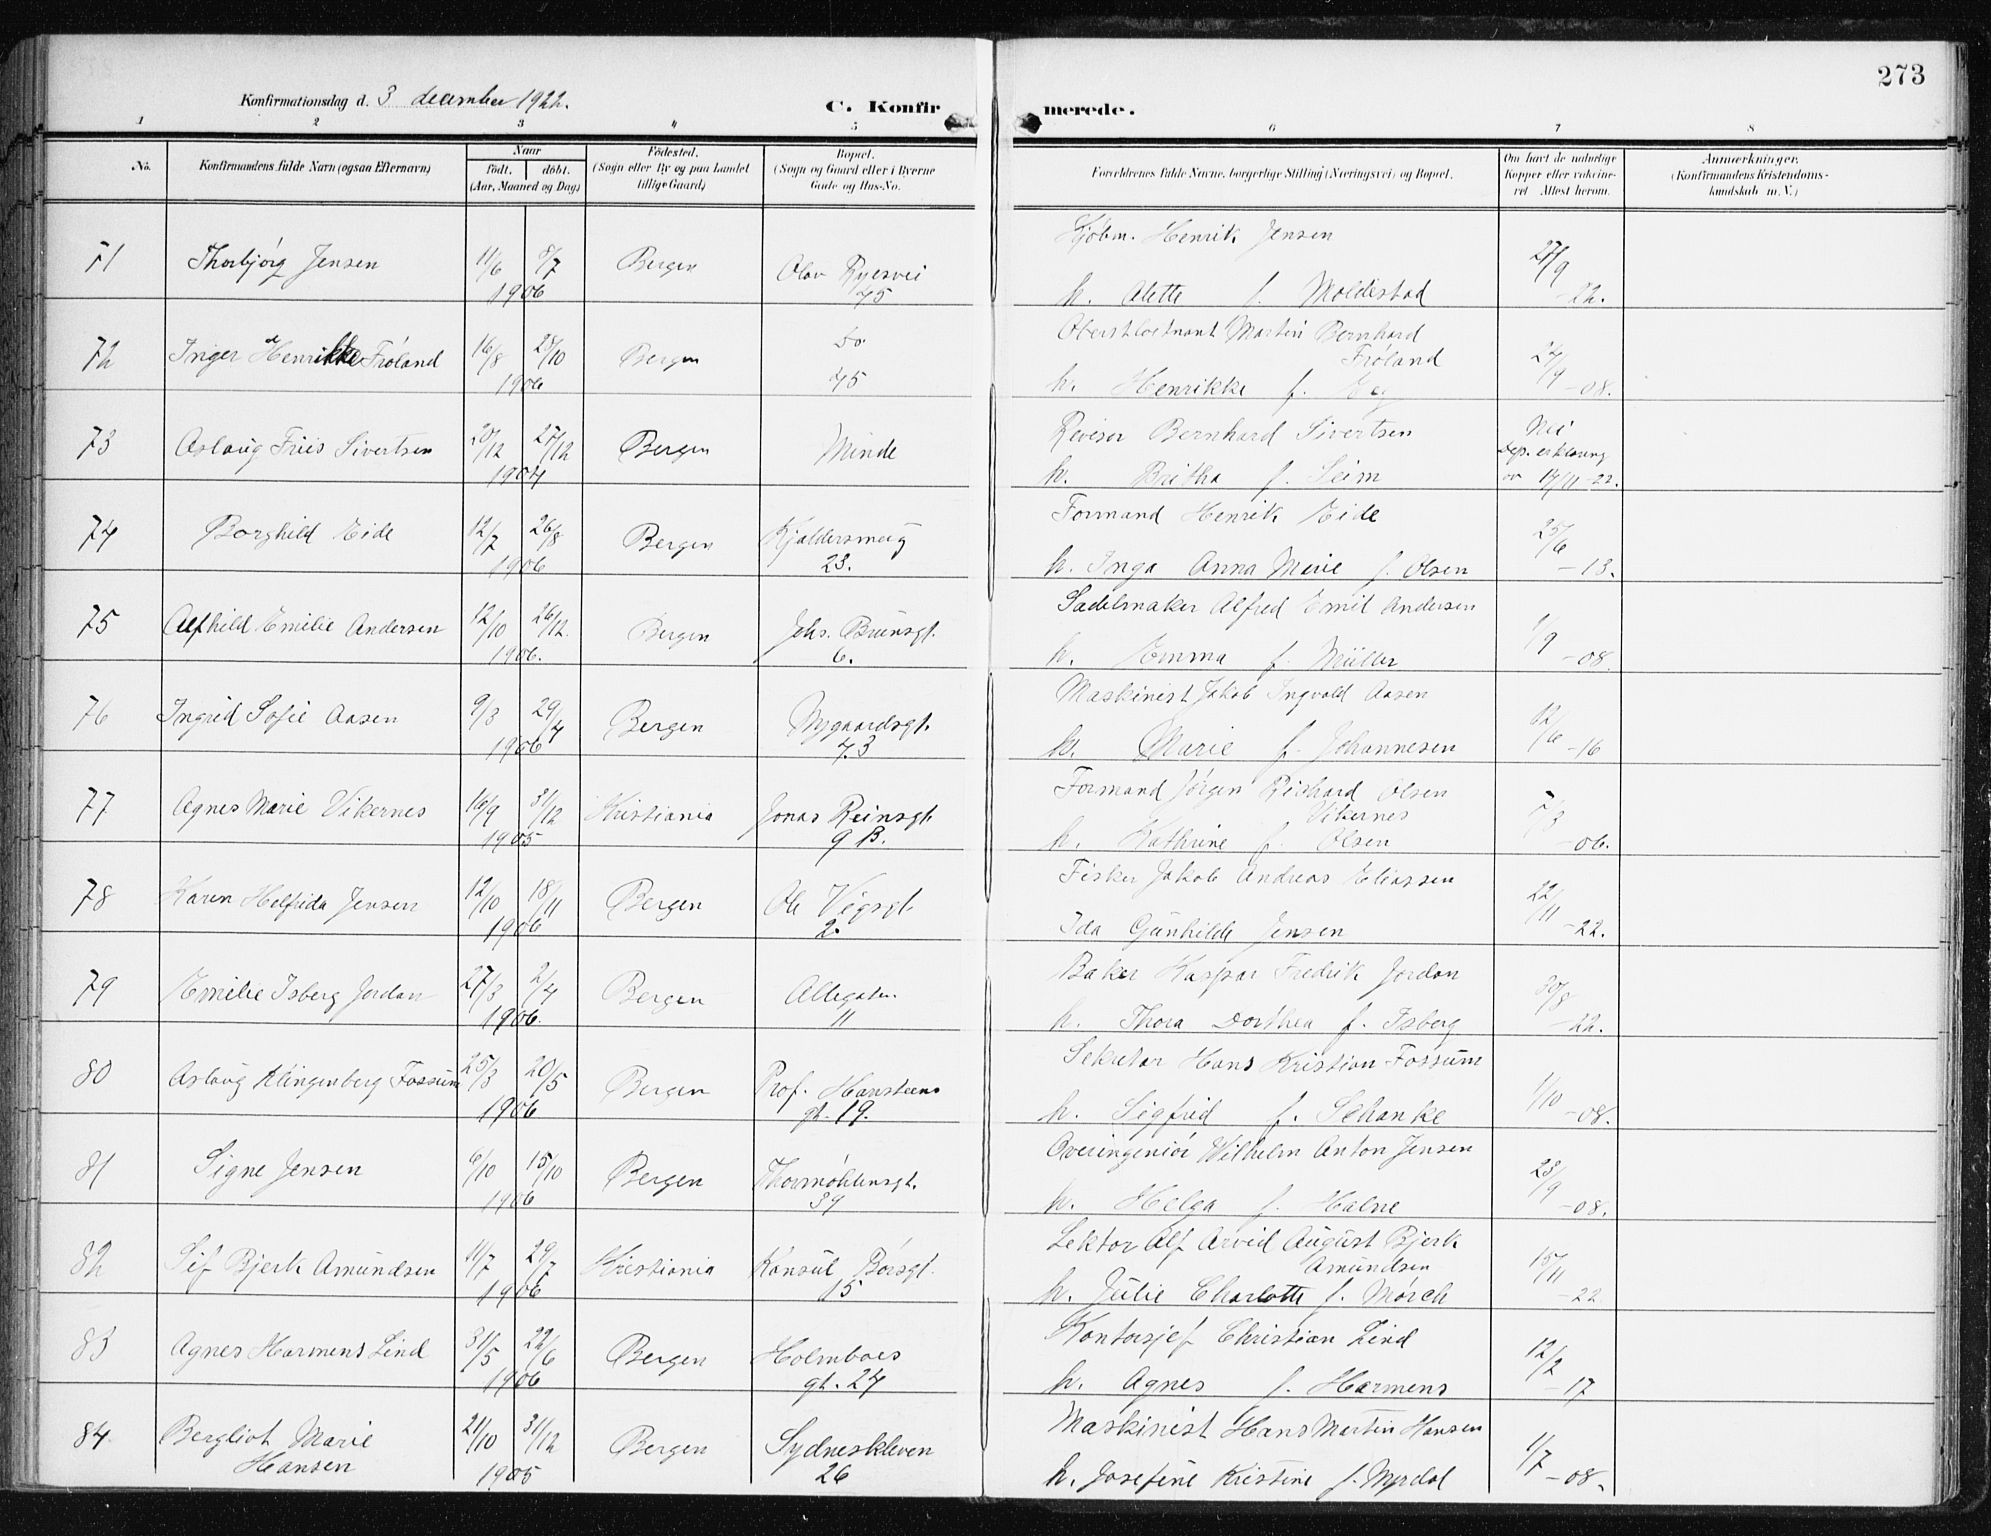 273
Konfirmationsdag d. 3 december 1922.
C. Konfirmerede.
1 2 3 4 5 6 7 8
No. Konfirmandens fulde Navn (ogsaa Efternavn) Naar født. døbt. (Aar, Maaned og Dag) Fødested. (Sogn eller By og paa Landet tillige Gaard) Bopæl. (Sogn og Gaard eller i Byerne Gade og Hus-No. Forældrenes fulde Navne, borgerlige Stilling (Næringsvei) og Bopæl. Om havt de naturlige Kopper eller vaksineret Attest herom. Anmærkninger. (Konfirmandens Kristendomskundskab m. V.)
71 Thorbjörg Jensen 11/6 8/7 1906 Bergen Olav Ryesvei 75 Kjöbm. Henrik Jensen
h. Alette f. Moldestad 27/9 -22.
72 Inger Henrikke Fröland 16/8 1906 Bergen do. 75 Oberstloetnant Martin Bernhard Fröland
h. Henrikke f. Eeg -08.
73 Aslaug Friis Sivertsen 20/12 27/12 1904 Bergen Minde Revisor Bernhard Sivertsen
h. Britha f. Seim Nei Dep. erklæring av 17/11-22.
74 Borghild Eide 12/7 26/8 1906 Bergen Kjaldersmug 23. Formand Henrik Eide
h. Inga Anna Marie f. Olsen 25/6 -13.
75 Alfhild Emilie Andersen 12/10 26/12. 1906. Bergen Johs. Bruunsgt. 6. Sadelmaker Alfred Emil Andersen
h. Emma f. Müller 1/9 -08.
76 Ingrid Sofie Aasen 9/3 29/4 1906 Bergen Nygaardsgt. 73 Maskinist Jakob Ingvald Aasen
h. Marie f. Johannesen 12/6 -16
77 Agnes Marie Vikernes 16/9 31/12 1905 Kristiania Jonas Reinsgt. 9 B. Formand Jörgen Richard Olsen Vikernes
h. Kathrine f. Olsen -06.
78 Karen Helfrida Jensen 12/10 18/11 1906 Bergen Ole Vigsgt. 2. Fisker Jakob Andreas Eliassen
Ida Gunhilde Jensen 22/11 -22.
79 Emilie Isberg Jordan 27/3 2/4 1906. Bergen Allegaten 11 Baker Kaspar Fredrik Jordan
h. Thora Dorthea f. Isberg 30/8 -22.
80 Aslaug Klingenberg Fossum 25/3 20/5 1906 Bergen Prof. Hansteens gt. 19. Sekretær Hans Kristian Fossum
h. Sigfrid f. Schanke 1/10 -08.
81 Signe Jensen 6/10 15/10 1906 Bergen Thormöhlensgt. 39 Overingeniör Wilhelm Anton Jensen
h. Helga f. Halne 23/9 -08.
82 Sif Bjerk Amundsen 11/7 29/7 1906 Kristiania Konsul Börsgt. 15 Lektor Alf Arvid August Bjerk Amundsen
h. Julie Charlotte f. Mörch 15/11 -22
83 Agnes Harmens Lind 31/5 22/6 1906 Bergen Holmboes gt. 24 Kontorsjef Christian Lind
h. Agnes f. Harmens 12/2 -17
84 Bergliot Marie Hansen 21/10 31/12 1905 Bergen Sydneskleven 26 Maskinist Hans Martin Hansen
h. Josefine Kristine f. Myrdal 1/7 -08.